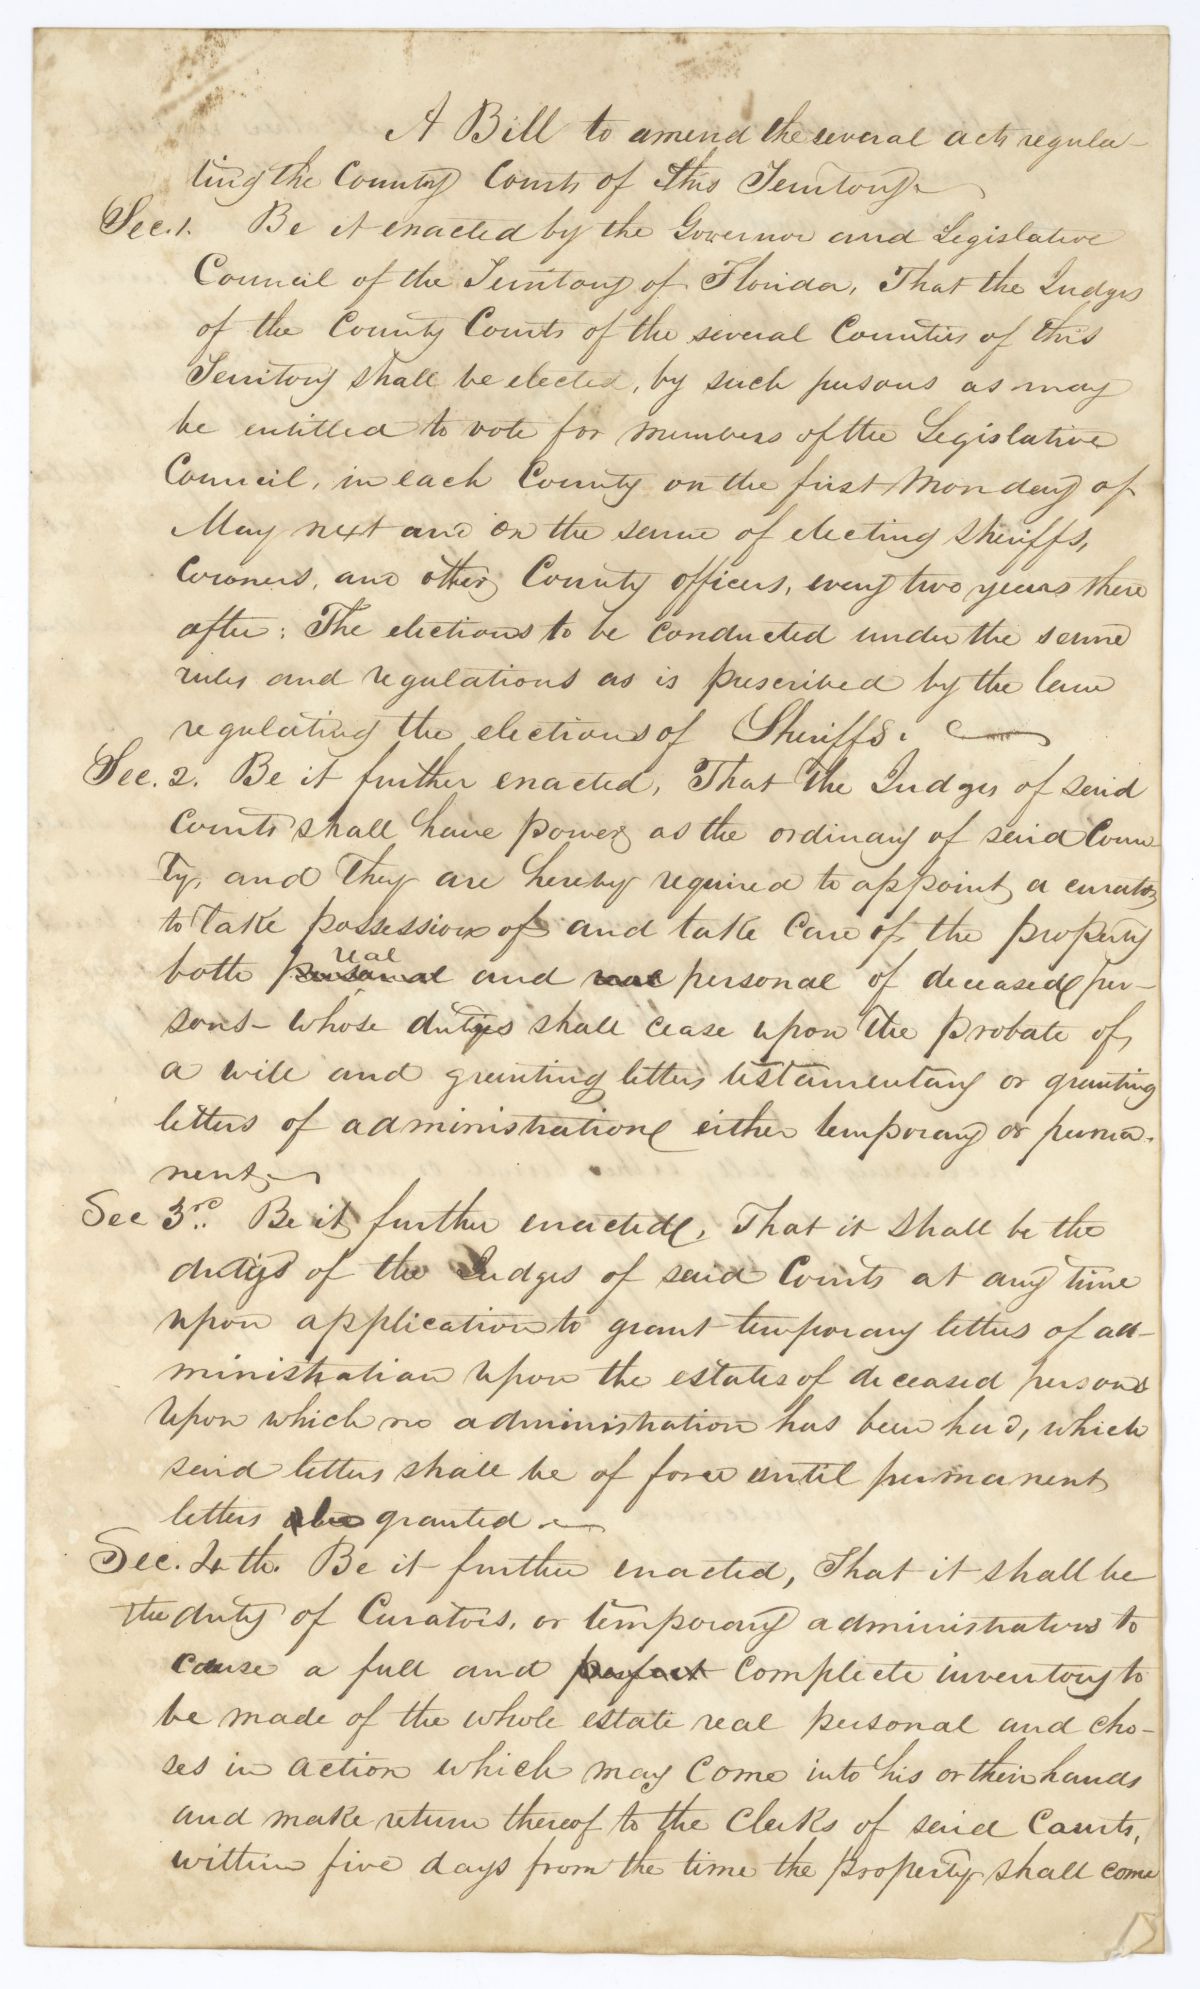 A Bill to amend the several acts regula-
ting the County Courts of this Territory.
Sec. 1. Be it enacted by the Governor and Legislative
Council of the Territory of Florida, That the Judges
of the County Courts of the several Counties of this
Territory shall be elected, by such persons as may
be entitled to vote for members of the Legislative
Council, in each County on the first Monday of
May next and on the same of electing sheriffs,
Coroners, and other County officers, every two years there
after: The elections to be conducted under the same
rules and regulations as is prescribed by the law
regulating the elections of Sheriffs.
Sec. 2. Be it further enacted, That the Judges of said
Courts shall have power as the ordinary of said Coun-
ty, and they are hereby required to appoint a curator
to take possession of and take care of the property
real
both personal and real personal of deceased per-
sons - whose duties shall cease upon the probate of
a will and granting letters testamentary or granting
letters of administration either temporary or perma-
nent.
Sec 3rd. Be it further enacted, That it shall be the
duties of the Judges of said Courts at any time
upon application to grant temporary letters of ad-
ministration upon the estates of deceased persons
upon which no administration has been had, which
said letters shall be of force until permanent
letters be granted.
Sec. 4th. Be it further enacted, That it shall be
the duty of Curators, or temporary administrators to
cause a full and perfect complete inventory to
be made of the whole estate real personal and cho-
ses in action which may come into his or their hands
and make return thereof to the Clerks of said Courts,
within five days from the time the property shall come